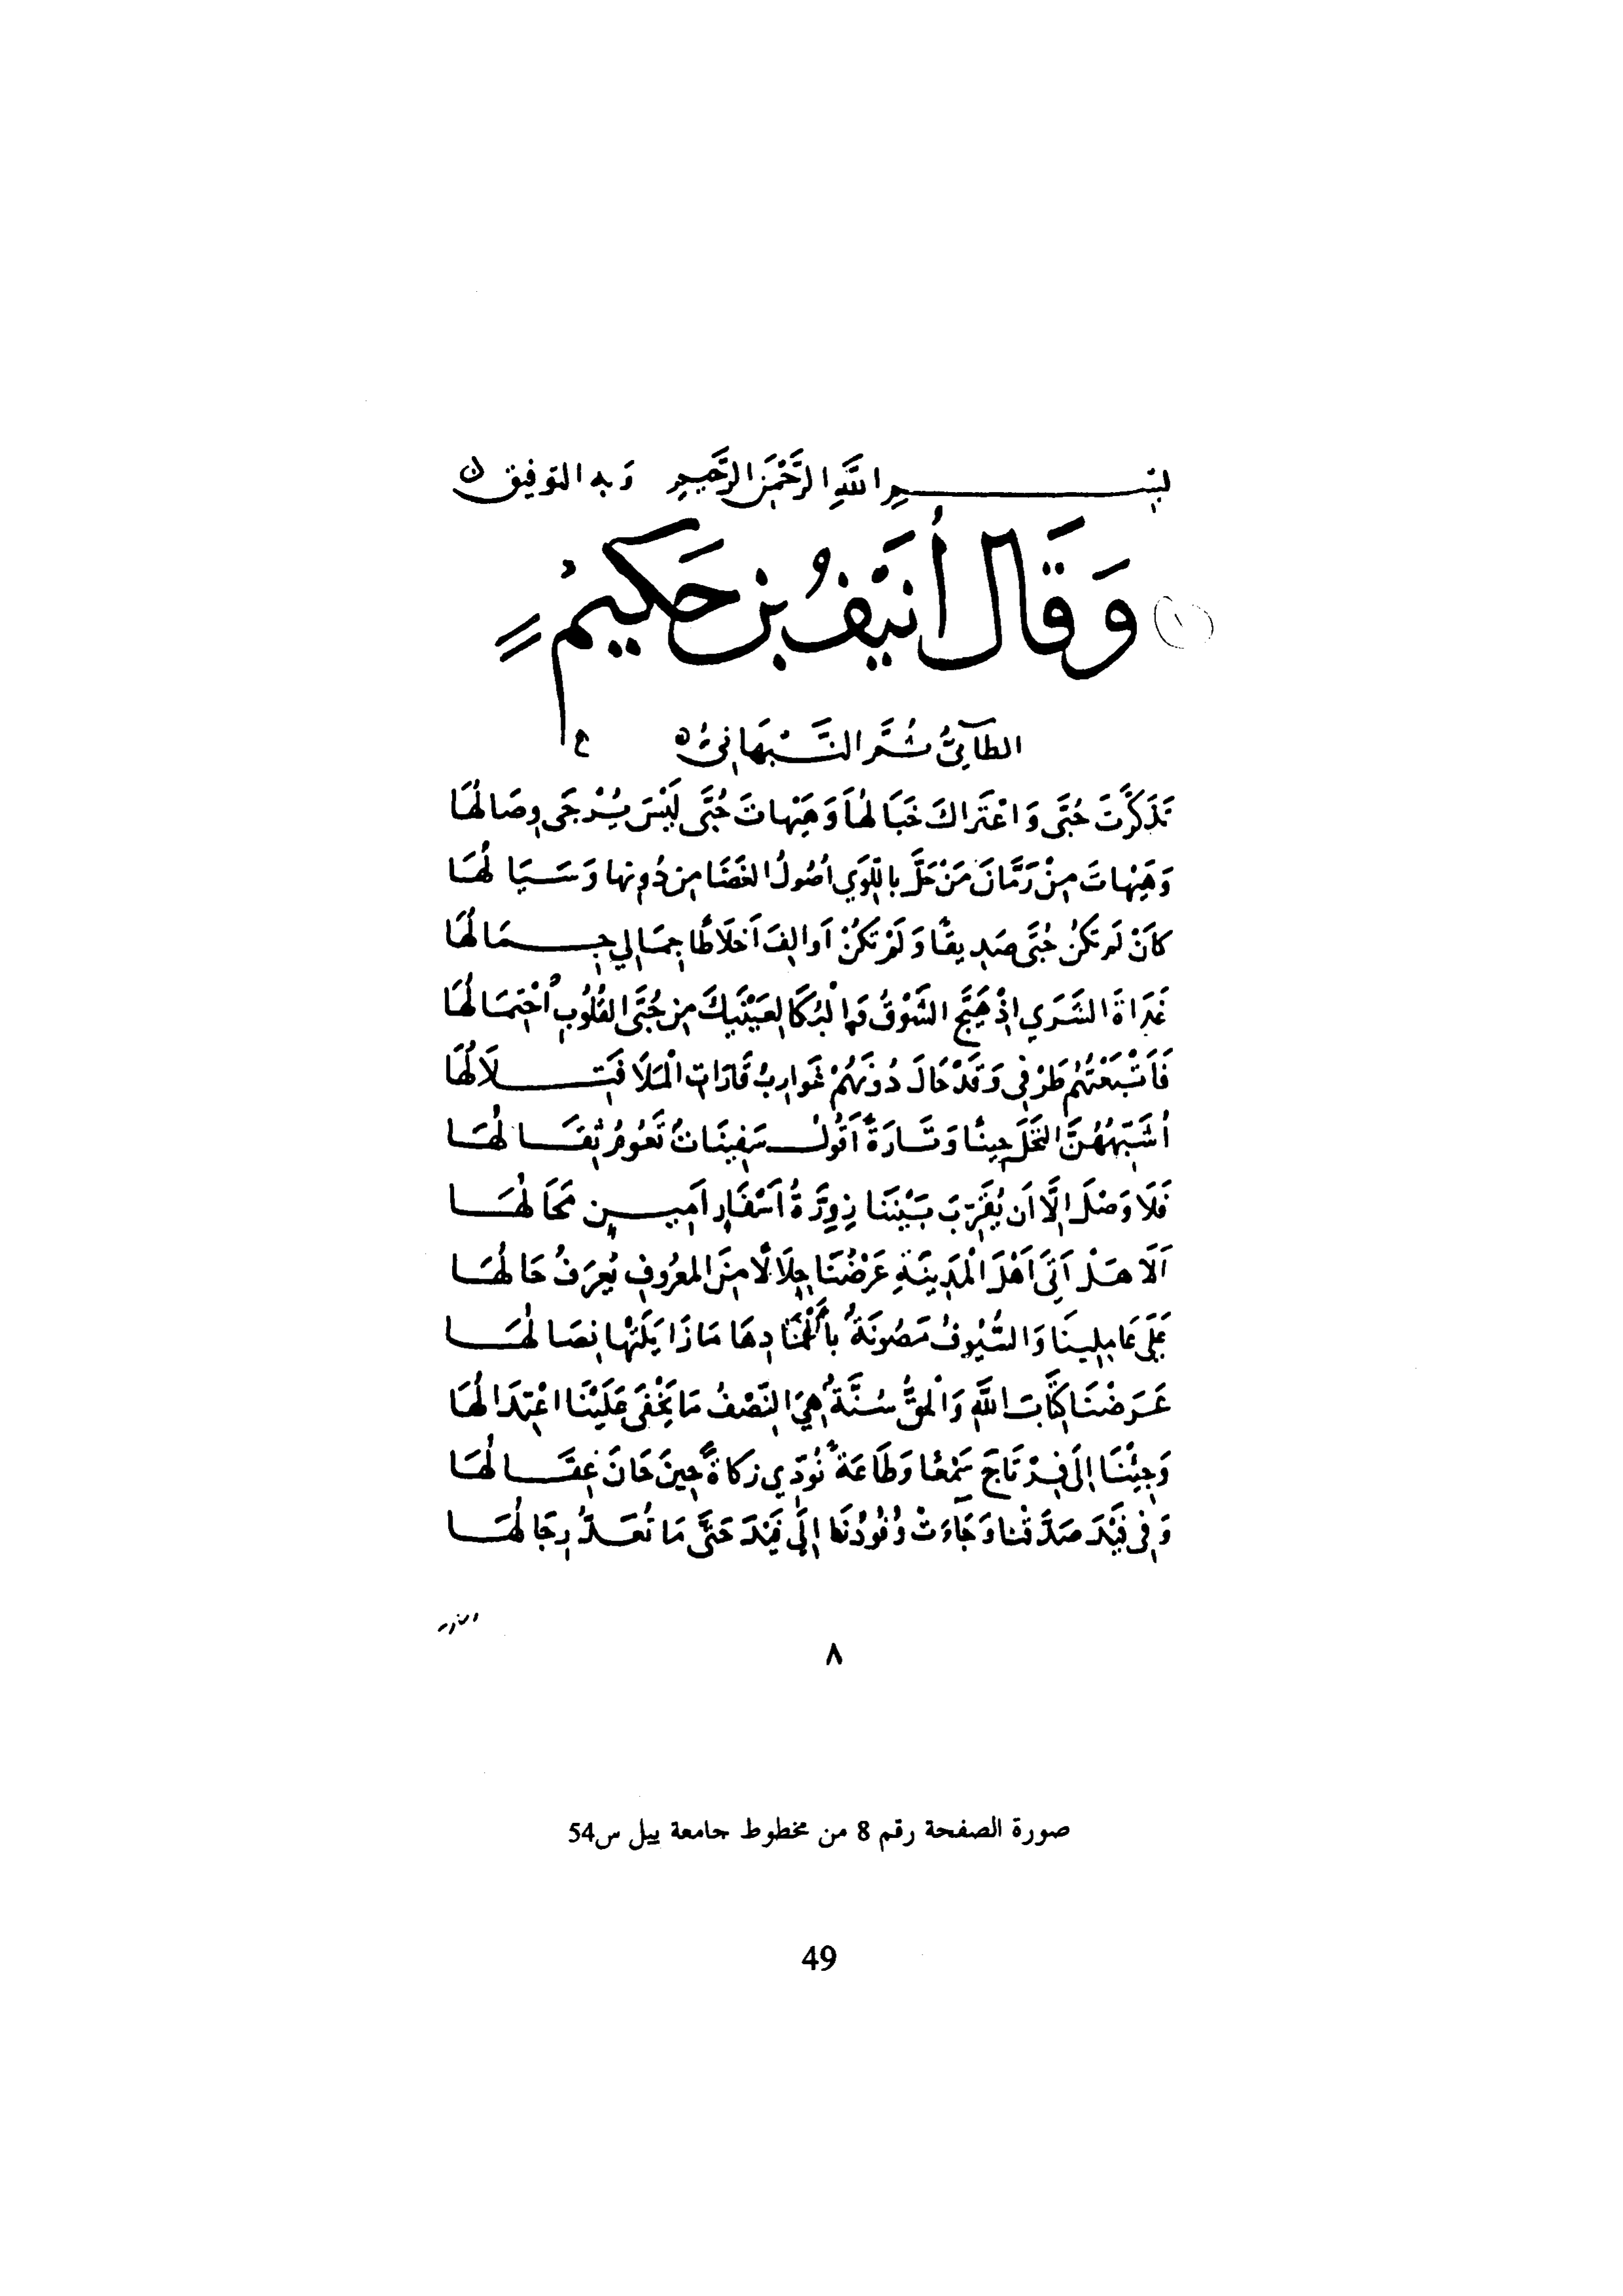 بِسْمِ اللَّهِ الرَّحْمَنِ الرَّحِيمِ وَبِهِ التَّوْفِيقُ
(١) وَقَالَ أُنَيْفُ بْنُ حَكِيمٍ
الطَّآئِيُّ ثُمَّ النَّبْهَانِيُّ
تَذَكَّرْتَ حُبَّى وَاعْتَرَاكَ خَبَالُهَا وَهَيْهَاتَ حُبَّى لَيْسَ يُرْجَى وِصَالُهَا
وَهَيْهَاتَ مِنْ رَمَّانَ مَنْ حَلَّ بِاللِّوَى أُصُولُ الغَضَا مِنْ دُونِهَا وَسَيَالُهَا
كَأَنْ لَمْ تَكُنْ حُبَّى صَدِيقًا وَلَمْ تَكُنْ أَوَالِفَ أَخْلَاطًا جِمَالِي جِمَالُهَا
غَدَاةَ الشَّرَى إِذْ هَيَّجَ الشَّوْقُ الْبُكَا لِعَيْنَيْكَ مِنْ حُبَّى القُلُوبِ احْتِمَالُهَا
فَأَتْبَعْتُهُمْ طَرْفِي وَقَدْ حَالَ دُونَهُمْ غَوَارِبُ قَارَاتِ الْمَلَا فَتِلَالُهَا
أُشَبِّهُهُنَّ النَّخْلَ حِينًا وَتَارَةً أَقُولُ سَفِينَاتٌ تَعُومُ ثِقَالُهَا
فَلَا وَصْلَ إِلَّا أَنْ يُقَرِّبَ بَيْنَنَا زِوَرَّةُ أَسْفَارٍ أَمِينٍ مَحَالُهَا
أَلَا هَلْ أَتَى أَهْلَ الْمَدِينَةِ عَرْضُنَا خِلَالًا مِنَ المَعْرُوفِ يُعْرَفُ حَالُهَا
عَلَى عَامِلِينَا وَالسُّيُوفُ مَصُونَةٌ بِأَغْمَادِهَا مَا زَايَلَتْهَا نِصَالُهَا
عَرَضْنَا كِتَابَ اللَّهِ وَالْحَقُّ سُنَّةٌ هِيَ النِّصْفُ مَا يَخْفَى عَلَيْنَا اعْتِدَالُهَا
وَجِئْنَا إِلَى فِرْتَاجَ سَمْعًا وَطَاعَةً نُؤَدِّي زَكَاةً حِينَ حَانَ عِقَالُهَا
وَفِي فَيْدَ صَدَّقْنَا وَجَاءَتْ وُفُودُنَا إِلَى فَيْدَ حَتَّى مَا تُعَدُّ رِجَالُهَا
٨
صورة الصفحة رقم 8 من مخطوط جامعة ييل س54
49